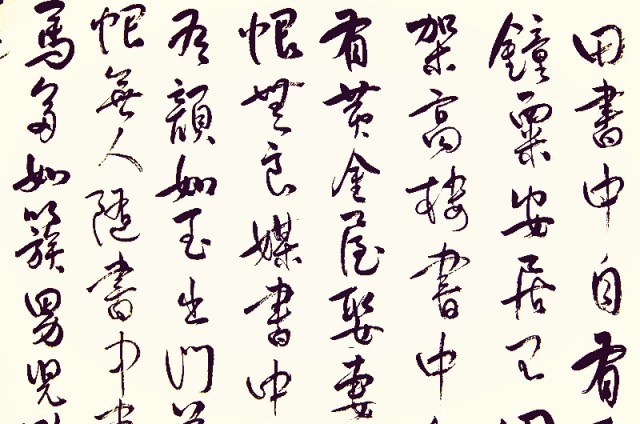 田書中自有
鐘粟安居不
架高樓書中
有黄金屋娶妻
恨無良媒書中
有顏如玉出門
恨無人隨書中
馬多如簇男兒